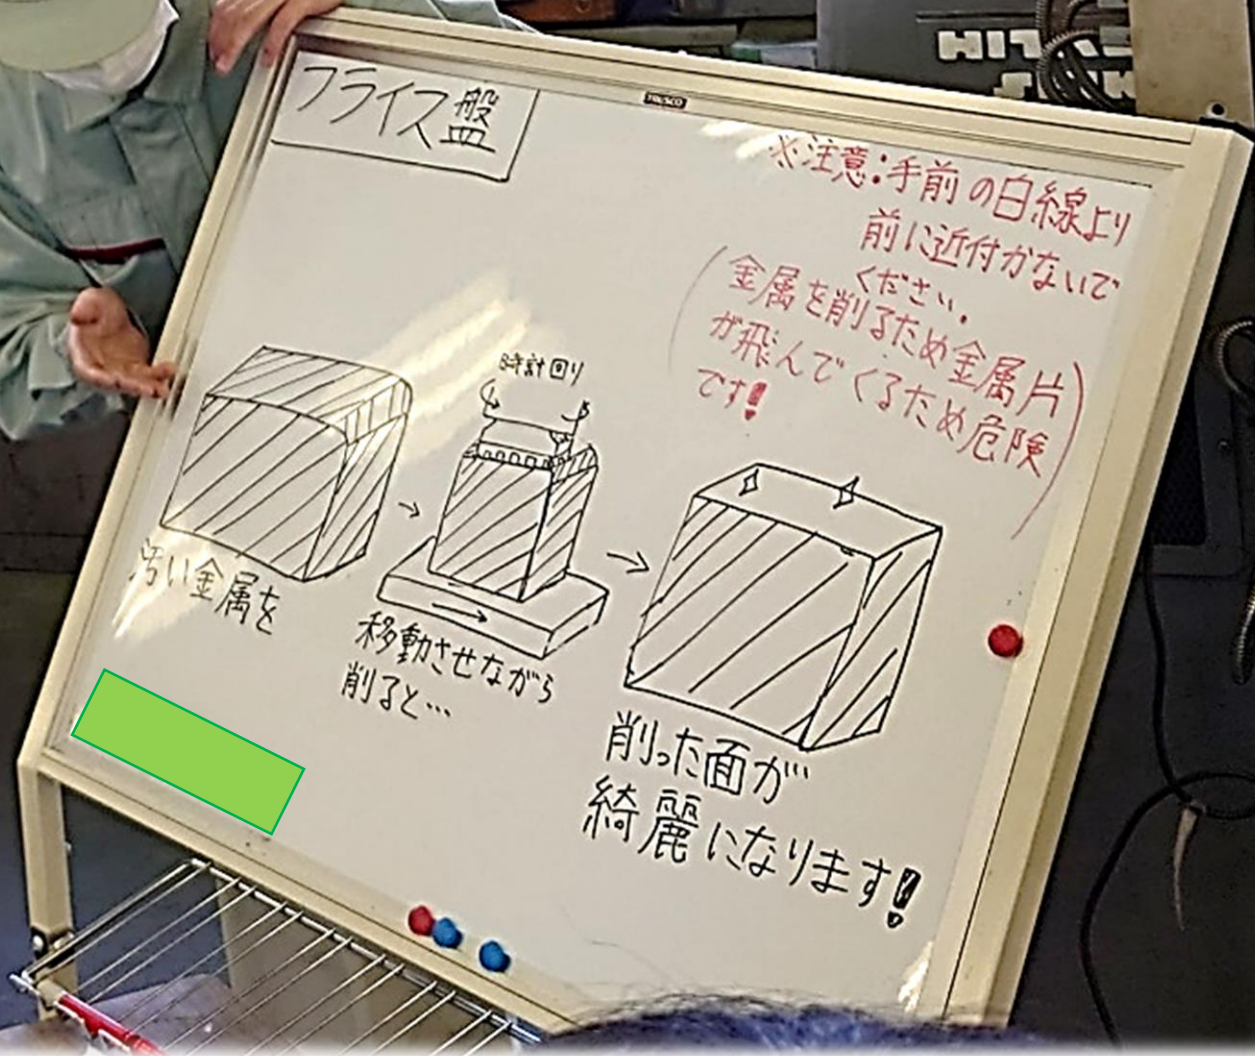 フライス盤
※注意:手前の白線より
前に近付かないで
ください。
(金属を削るため金属片
が飛んでくるため危険
です!)
時計回り
汚い金属を
→
移動させながら
削ると…
→
削った面が
綺麗になります!
HILTI